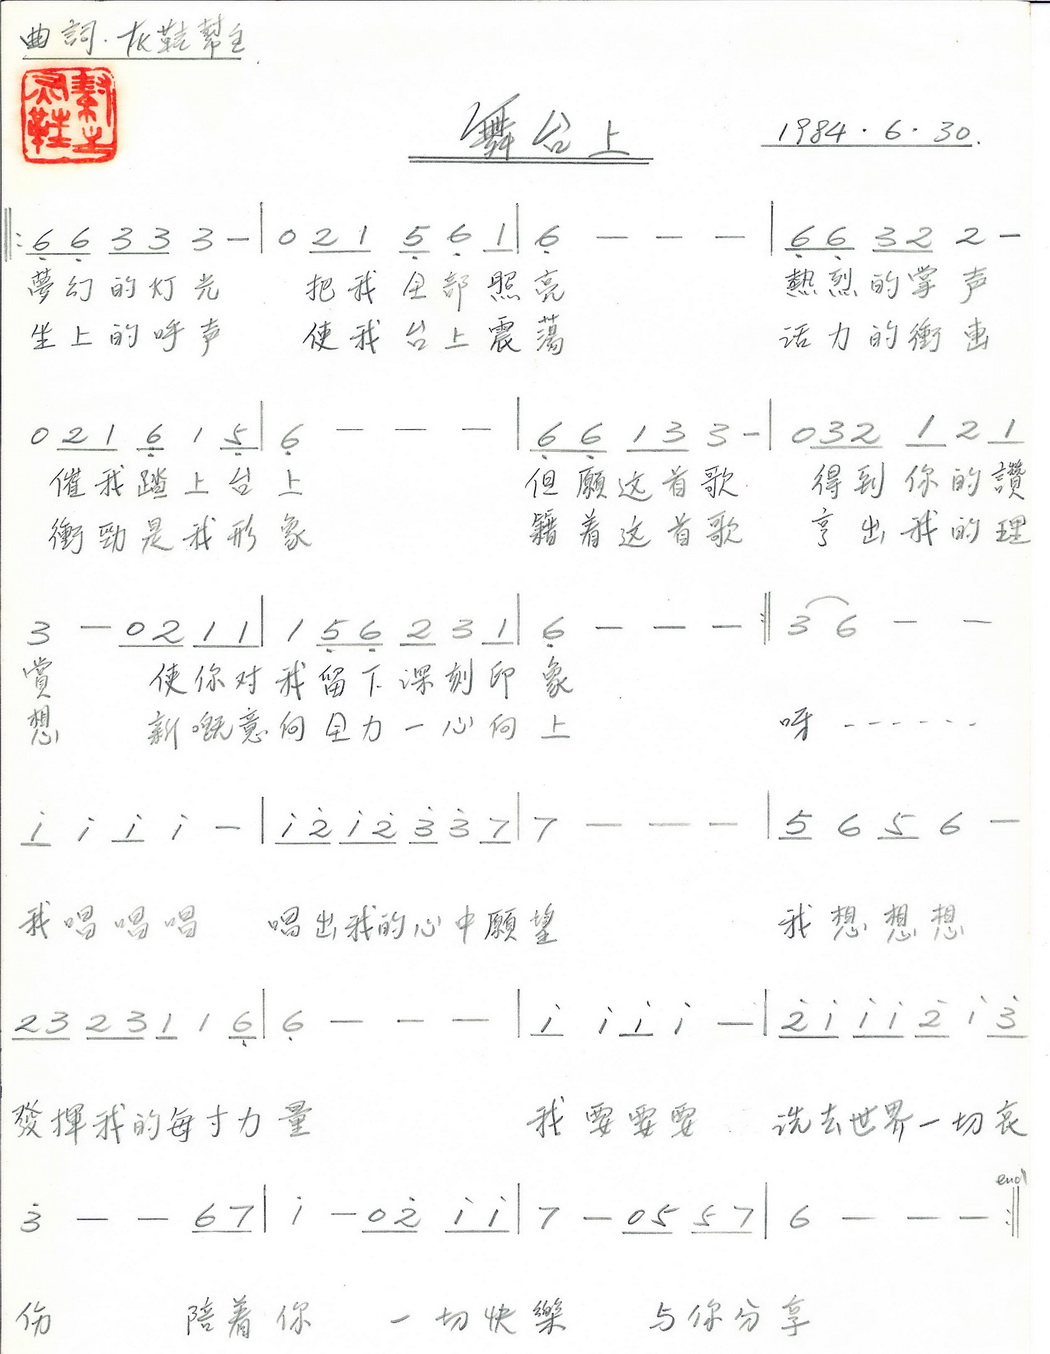 曲詞·灰鞋幫主
灰鞋幫主
舞台上
1984·6·30.
‖: 6 6 3 3 3 — | 0 2 1 5 6 1 | 6 — — — | 6 6 3 2 2 —
夢幻的灯光 把我全部照亮 熱烈的掌声
坐上的呼声 使我台上震蕩 活力的衝击
0 2 1 6 1 5 | 6 — — — | 6 6 1 3 3 — | 0 3 2 1 2 1
催我踏上台上 但願这首歌 得到你的讚
衝勁是我形象 籍着这首歌 亨出我的理
3 — 0 2 1 1 | 1 5 6 2 3 1 | 6 — — — :‖ 3 6 — —
賞 使你对我留下深刻印象
想 新嘅意向全力一心向上 呀 - - - - - -
i i i i — | i 2 i 2 3 3 7 | 7 — — — | 5 6 5 6 —
我唱唱唱 唱出我的心中願望 我想想想
2 3 2 3 1 1 6 | 6 — — — | i i i i — | 2 i i i 2 i 3
發揮我的每寸力量 我要要要 洗去世界一切哀
end
3 — — 6 7 | i — 0 2 i i | 7 — 0 5 5 7 | 6 — — — :‖
伤 陪着你 一切快樂 与你分享